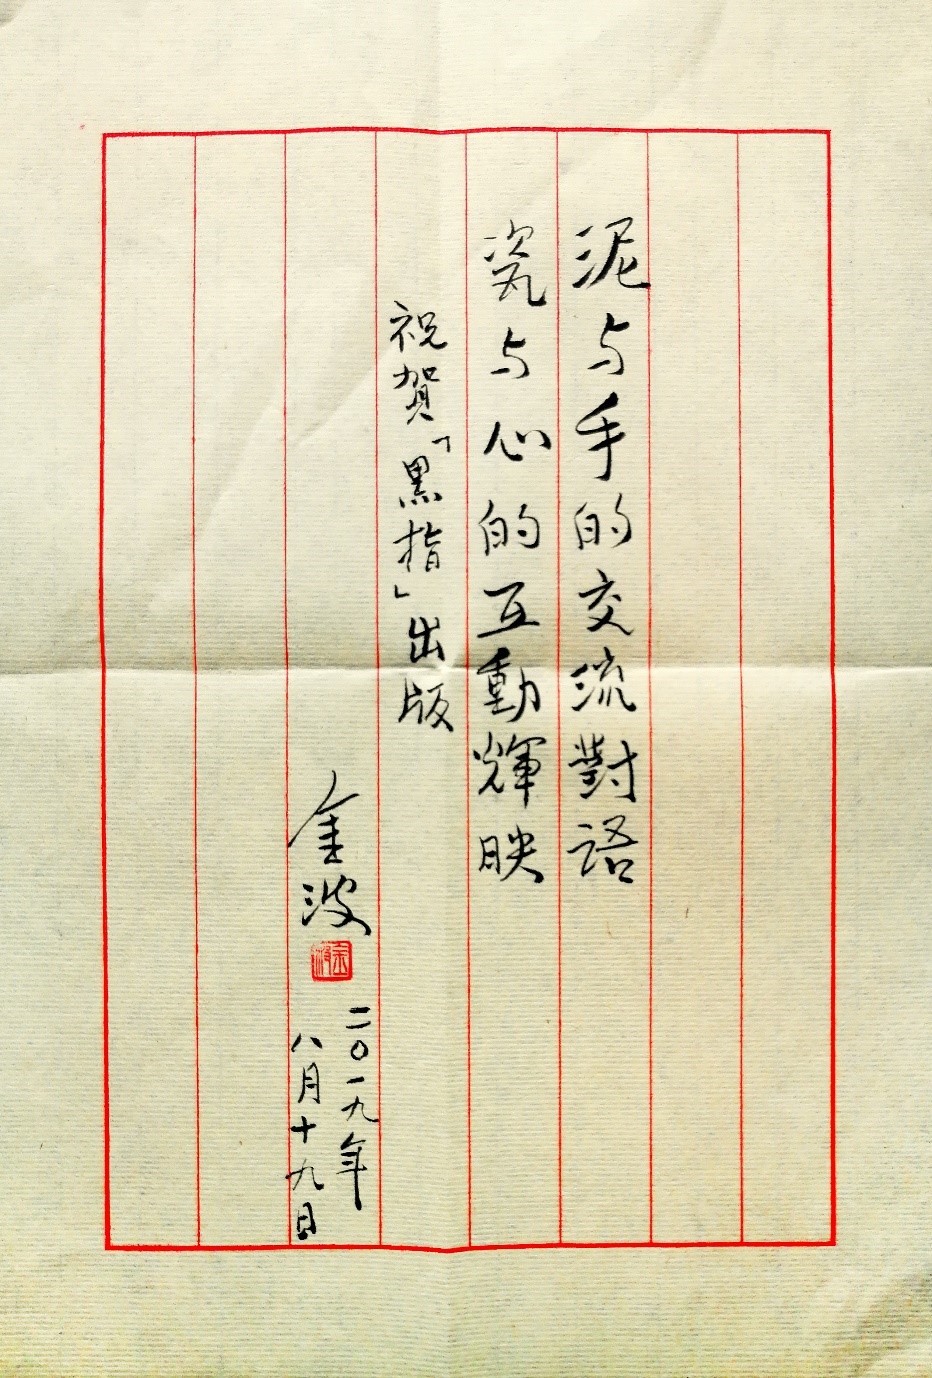 泥与手的交流對語
瓷与心的互動輝映
祝賀「黑指」出版
金波
金波
二〇一九年
八月十九日